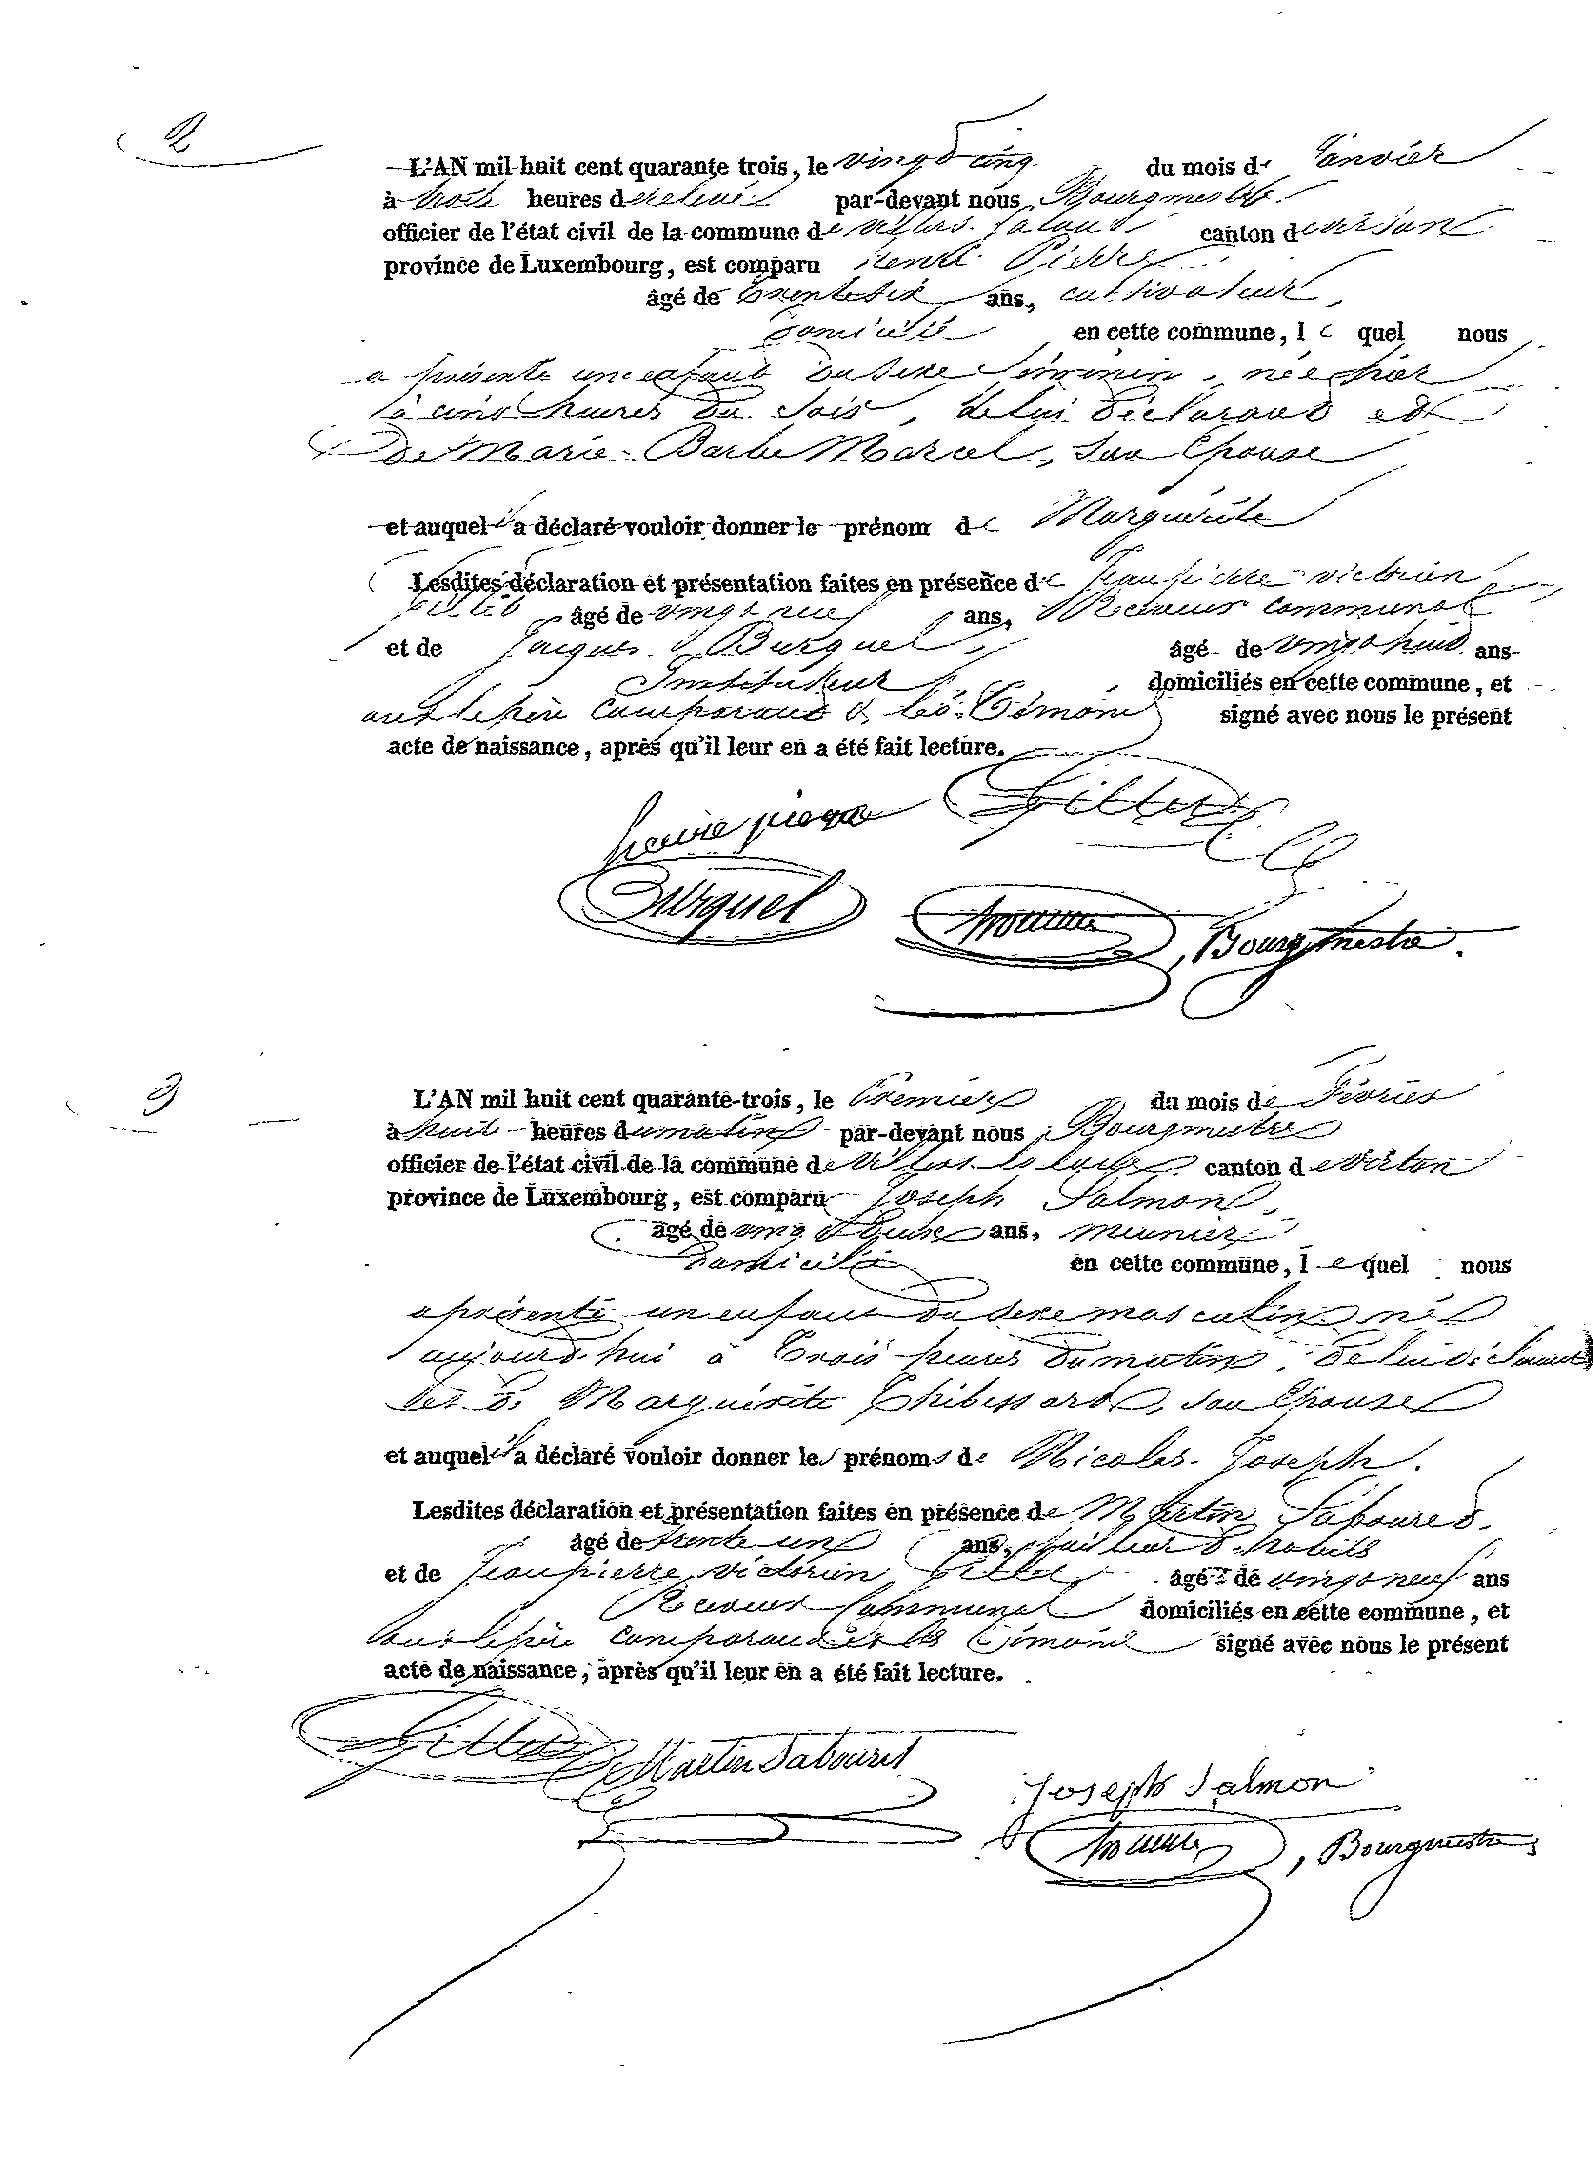 2
L'AN mil huit cent quarante trois, le vingt cinq du mois de Janvier
à trois heures de relevée par-devant nous, Bourgmestre
officier de l'état civil de la commune de Villers-la-Loue canton de Virton
province de Luxembourg, est comparu Henri Pierre
âgé de trente six ans, cultivateur,
domicilié en cette commune, le quel nous
a présenté un enfant du sexe féminin, née hier
à cinq heures du soir, de lui déclarant et
de Marie-Barbe Marcel, son épouse
et auquel il a déclaré vouloir donner le prénom de Marguérite
Lesdites déclaration et présentation faites en présence de Jean pierre victorien
âgé de vingt neuf ans, Receveur communal
et de Jacques Burquel, âgé de vingt huit ans
Instituteur domiciliés en cette commune, et
ont le père comparant & les témoins signé avec nous le présent
acte de naissance, après qu'il leur en a été fait lecture.
henri pierre
Burquel , Bourgmestre.
3
L'AN mil huit cent quarante-trois, le Premier du mois de Février
à huit heures du matin par-devant nous, Bourgmestre
officier de l'état civil de la commune de Villers-la-Loue canton de Virton
province de Luxembourg, est comparu Joseph Salmon,
âgé de vingt douze ans, meunier,
domicilié en cette commune, le quel nous
a présenté un enfant du sexe masculin né
aujourd'hui à trois heures du matin, de lui déclarant
et de Marguérite Thibessard, son épouse
et auquel il a déclaré vouloir donner les prénoms de Nicolas-Joseph.
Lesdites déclaration et présentation faites en présence de Martin Saboured,
âgé de trente un ans, tailleur d'habits
et de Jean pierre victorien âgé de vingt neuf ans
Receveur Communal domiciliés en cette commune, et
ont le père comparant et les témoins signé avec nous le présent
acte de naissance, après qu'il leur en a été fait lecture.
Martin Sabouret
Joseph Salmon
, Bourgmestre